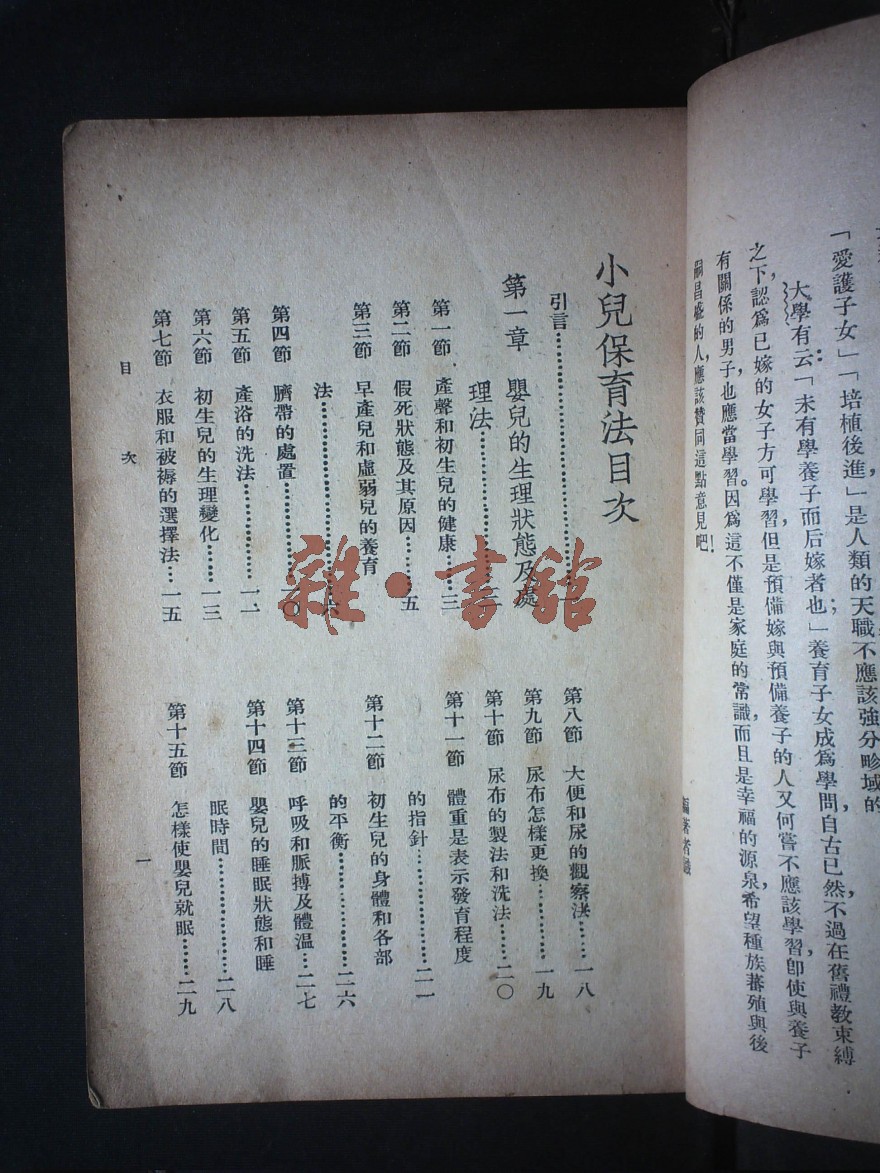 「愛護子女」「培植後進」是人類的天職,不應該強分畛域的
大學有云:「未有學養子而后嫁者也」;養育子女成爲學問,自古已然,不過在舊禮教束縛
之下,認爲已嫁的女子方可學習,但是預備嫁與預備養子的人,又何嘗不應該學習,卽使與養子
有關係的男子,也應當學習。因爲這不僅是家庭的常識,而且是幸福的源泉,希望種族蕃殖與後
嗣昌盛的人,應該贊同這點意見吧!
編著者識
小兒保育法目次
引言……一
第一章 嬰兒的生理狀態及處
理法……三
第一節 產聲和初生兒的健康……三
第二節 假死狀態及其原因……五
第三節 早產兒和虛弱兒的養育
法……六
第四節 臍帶的處置……一〇
第五節 產浴的洗法……一一
第六節 初生兒的生理變化……一三
第七節 衣服和被褥的選擇法……一五
第八節 大便和尿的觀察法……一八
第九節 尿布怎樣更換……一九
第十節 尿布的製法和洗法……二〇
第十一節 體重是表示發育程度
的指針……二一
第十二節 初生兒的身體和各部
的平衡……二六
第十三節 呼吸和脈搏及體温……二七
第十四節 嬰兒的睡眠狀態和睡
眠時間……二八
第十五節 怎樣使嬰兒就眠……二九
目次
一
雜·書館